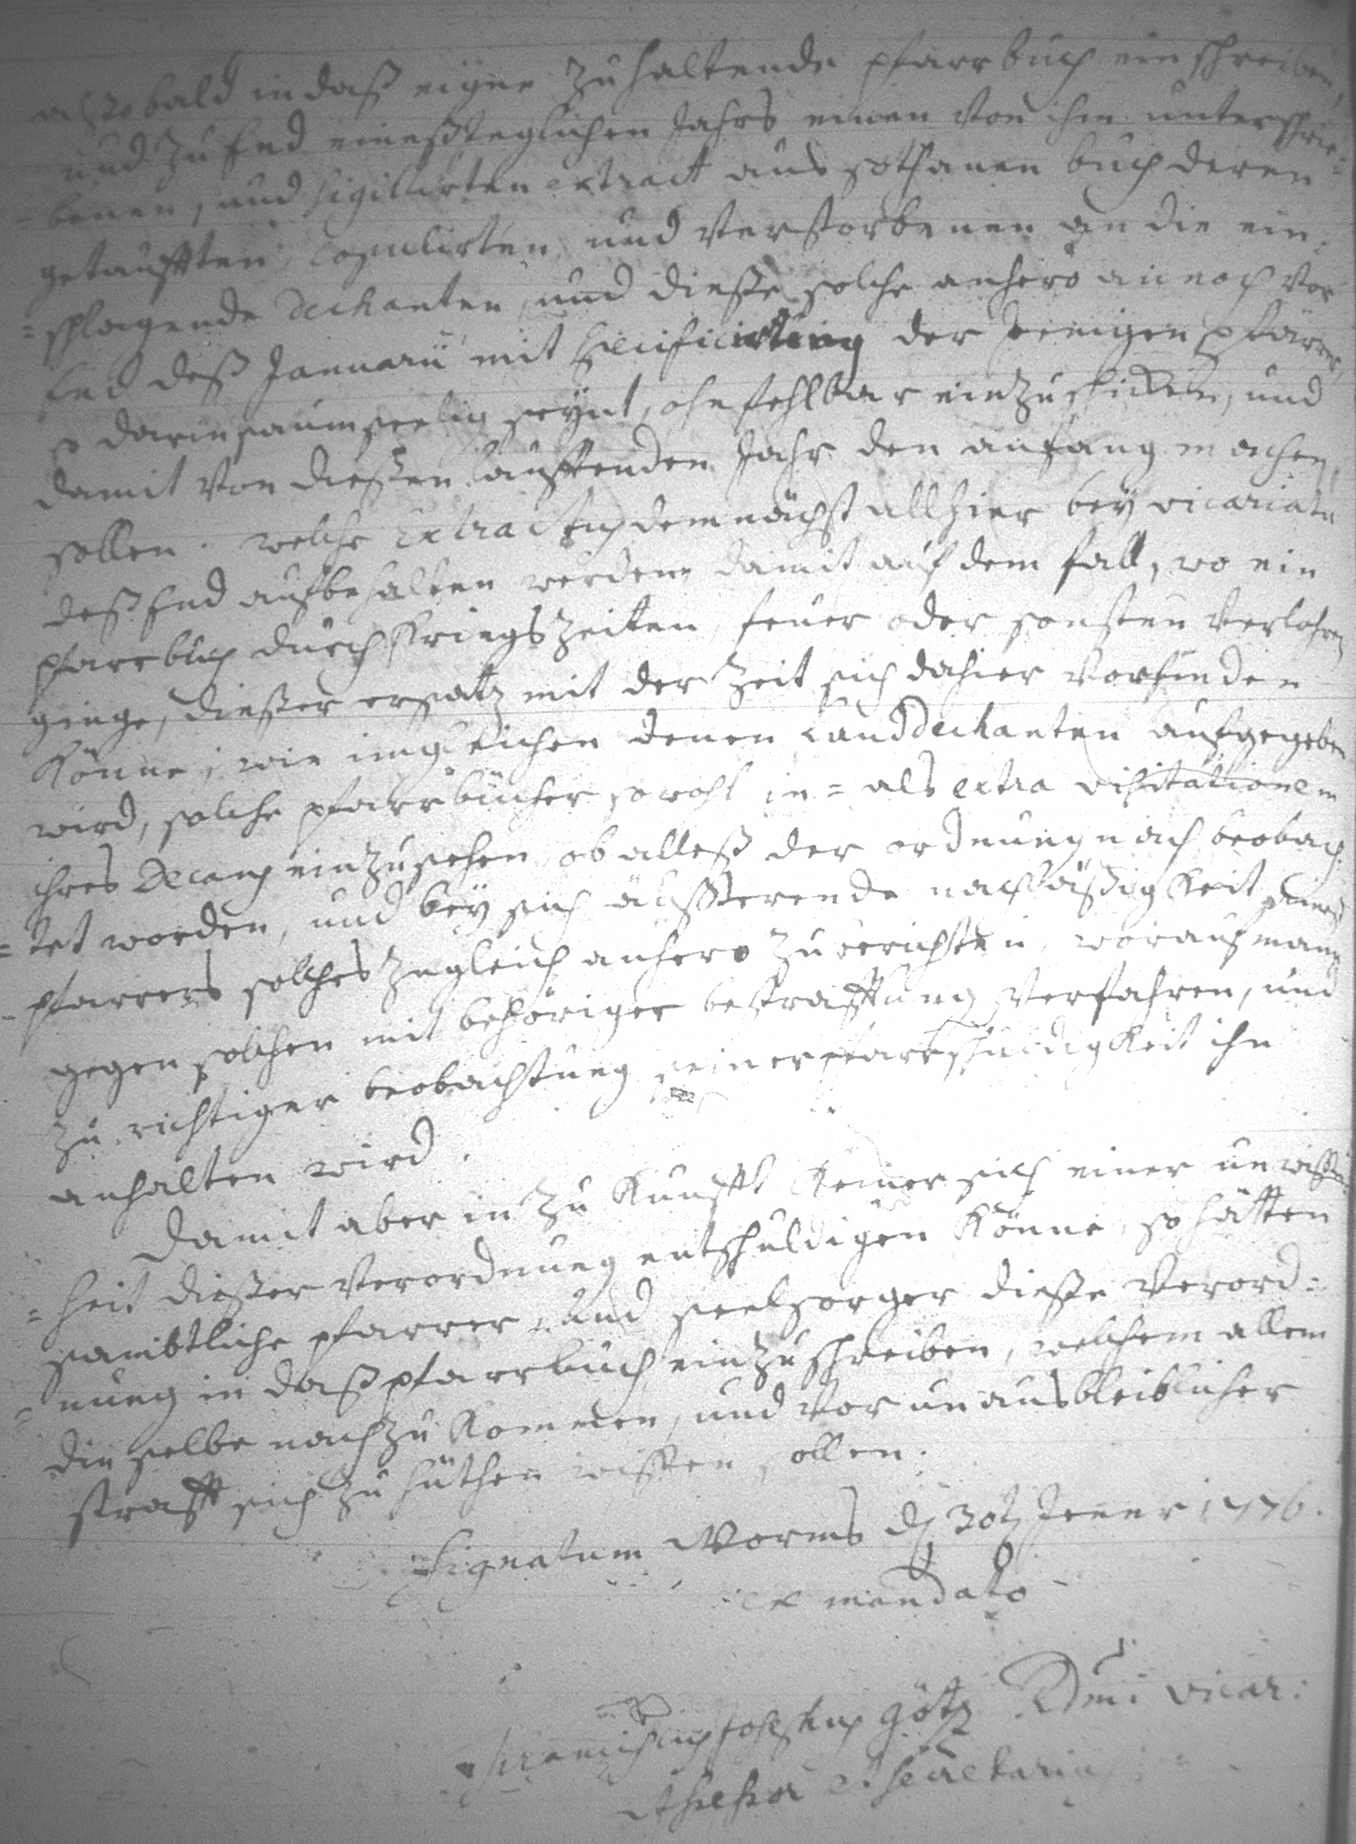 alsobald in daß eigne zu haltende pfarrbuch einschreiben,
und zu End eineß jeglichen Jahrs einen von ihm unterschrie=
=benen, und sigillirten extract aus sothanen buch deren
getaufften, copulirten und verstorbenen an die ein=
=schlagende Dechanten, und dieße solche anhero annoch vor
End deß Januarii mit specificirung der jenigen pfarrer,
so darin saumseelig seynt, ohnfehlbar einzuschicken, und
damit von dießen lauffenden Jahr den anfang machen
sollen. welche Extractus demnächst allhier bey vicariatu
deß End aufbehalten werden, damit auf dem fall, wo ein
pfarrbuch durch Kriegszeiten, feuer oder sonsten verlohren
ginge, dießer ersatz mit der Zeit sich dahier vorfinden
könne, wie imgleichen denen LandDechanten aufgegeben
wird, solche pfarrbücher sowohl in= als extra visitationem
ihres Decanats einzusehen, ob alleß der ordnung nach beobach=
=tet worden, und bey sich äußerende nachläßigkeit eines
pfarrers solches zugleich anhero zu berichten, worauf man
gegen solchen mit behöriger bestraffung verfahren, und
zu richtiger beobachtung seiner pfarrschuldigkeit ihn
anhalten wird.
Damit aber in zukunfft keiner sich einer unwissen=
=heit dießer verordnung entschuldigen könne, so hätten
sambtliche pfarrer und seelsorger dieße verord=
=nung in daß pfarrbuch einzuschreiben, welchem allem
dieselbe nachzukommen, und vor unausbleiblicher
straff sich zu hüthen wissen sollen.
Signatum Worms d 30t Jener 1776.
ex mandato
Franciscus Josephus Götz Rdmi vicar:
Assessor et Secretarius